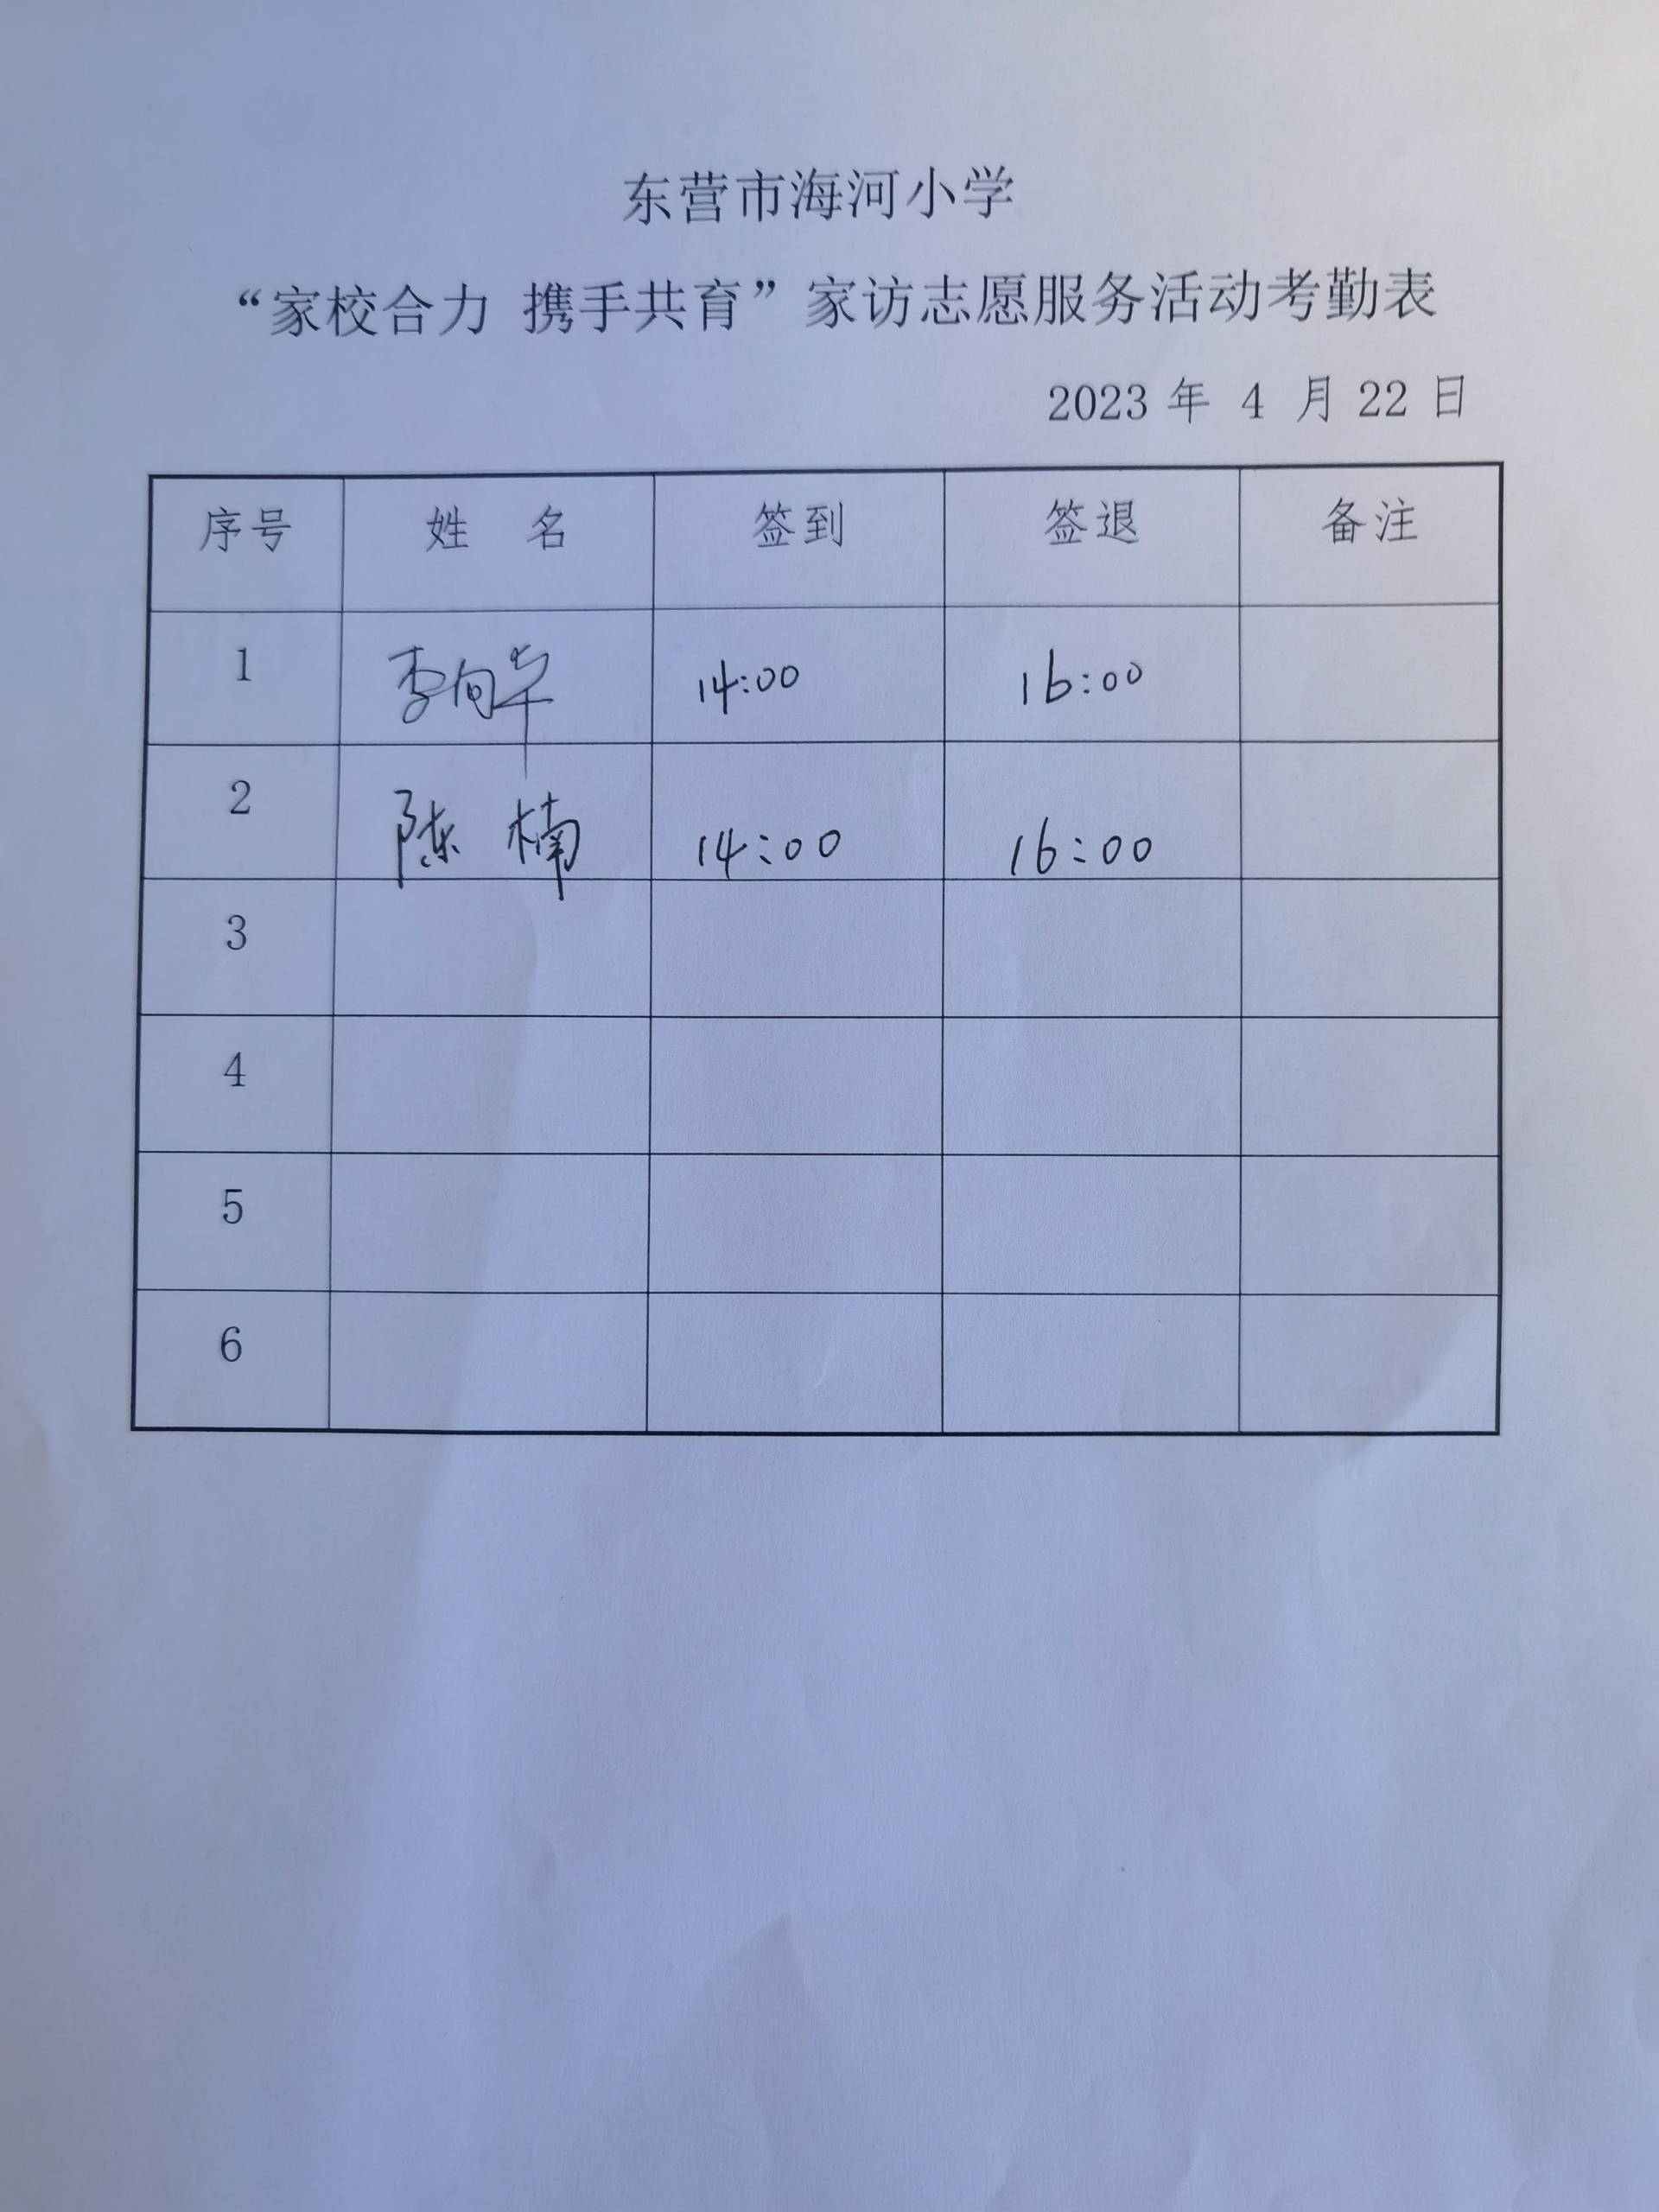 东营市海河小学
“家校合力 携手共育”家访志愿服务活动考勤表
2023 年 4 月 22 日
序号 姓 名 签到 签退 备注
1 李向华 14:00 16:00
2 陈 楠 14:00 16:00
3
4
5
6